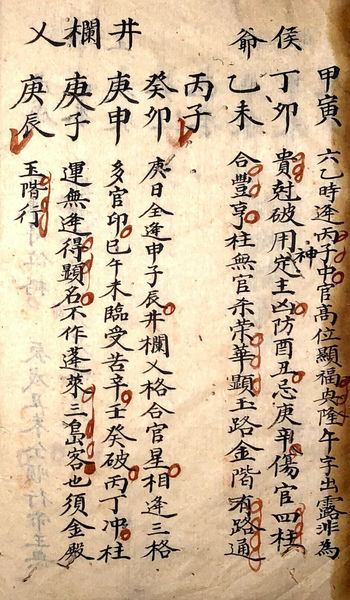 侯爺
甲寅 六乙時逢丙子中官高位顯福興隆午字出露非為
丁卯 貴尅破用神定主凶防酉丑忌庚辛傷官四柱
乙未 合豐亨柱無官杀荣華顯玉路金階有路通
丙子
井欄乂
癸卯 庚日全逢申子辰井欄乂格合官星相逢三格
庚申 多官印巳午未臨受苦辛壬癸破丙丁冲柱
庚子 運無逢得顯名不作蓬萊三島客也須金殿
庚辰 玉階行